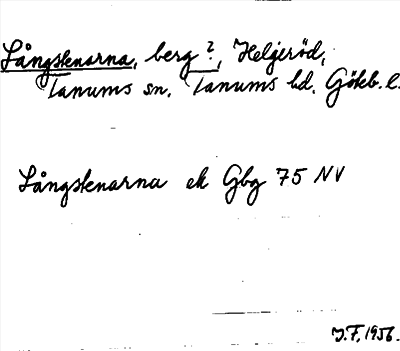 Långstenarna, berg?, Heljeröd,
Tanums sn. Tanums hd. Göteb. l.
Långstenarna ek Gbg 75 NV
J.F. 1956.